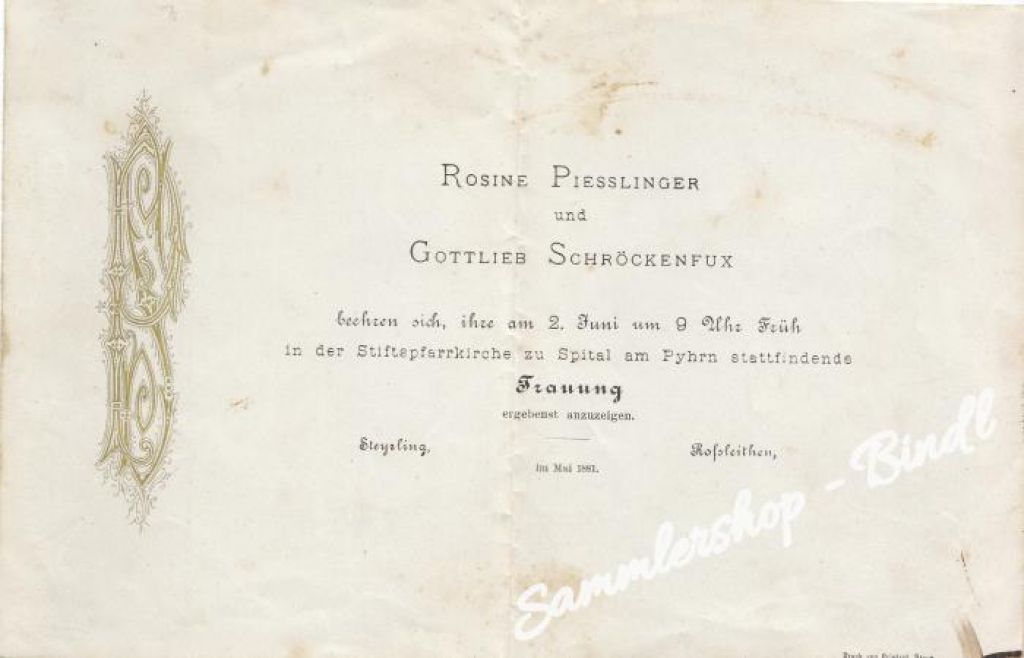 ROSINE PIESSLINGER
und
GOTTLIEB SCHRÖCKENFUX
beehren sich, ihre am 2. Juni um 9 Uhr Früh
in der Stiftspfarrkirche zu Spital am Pyhrn stattfindende
Trauung
ergebenst anzuzeigen.
Steyrling, Roßleithen,
im Mai 1881.
Sammlershop - Bindl
Druck von